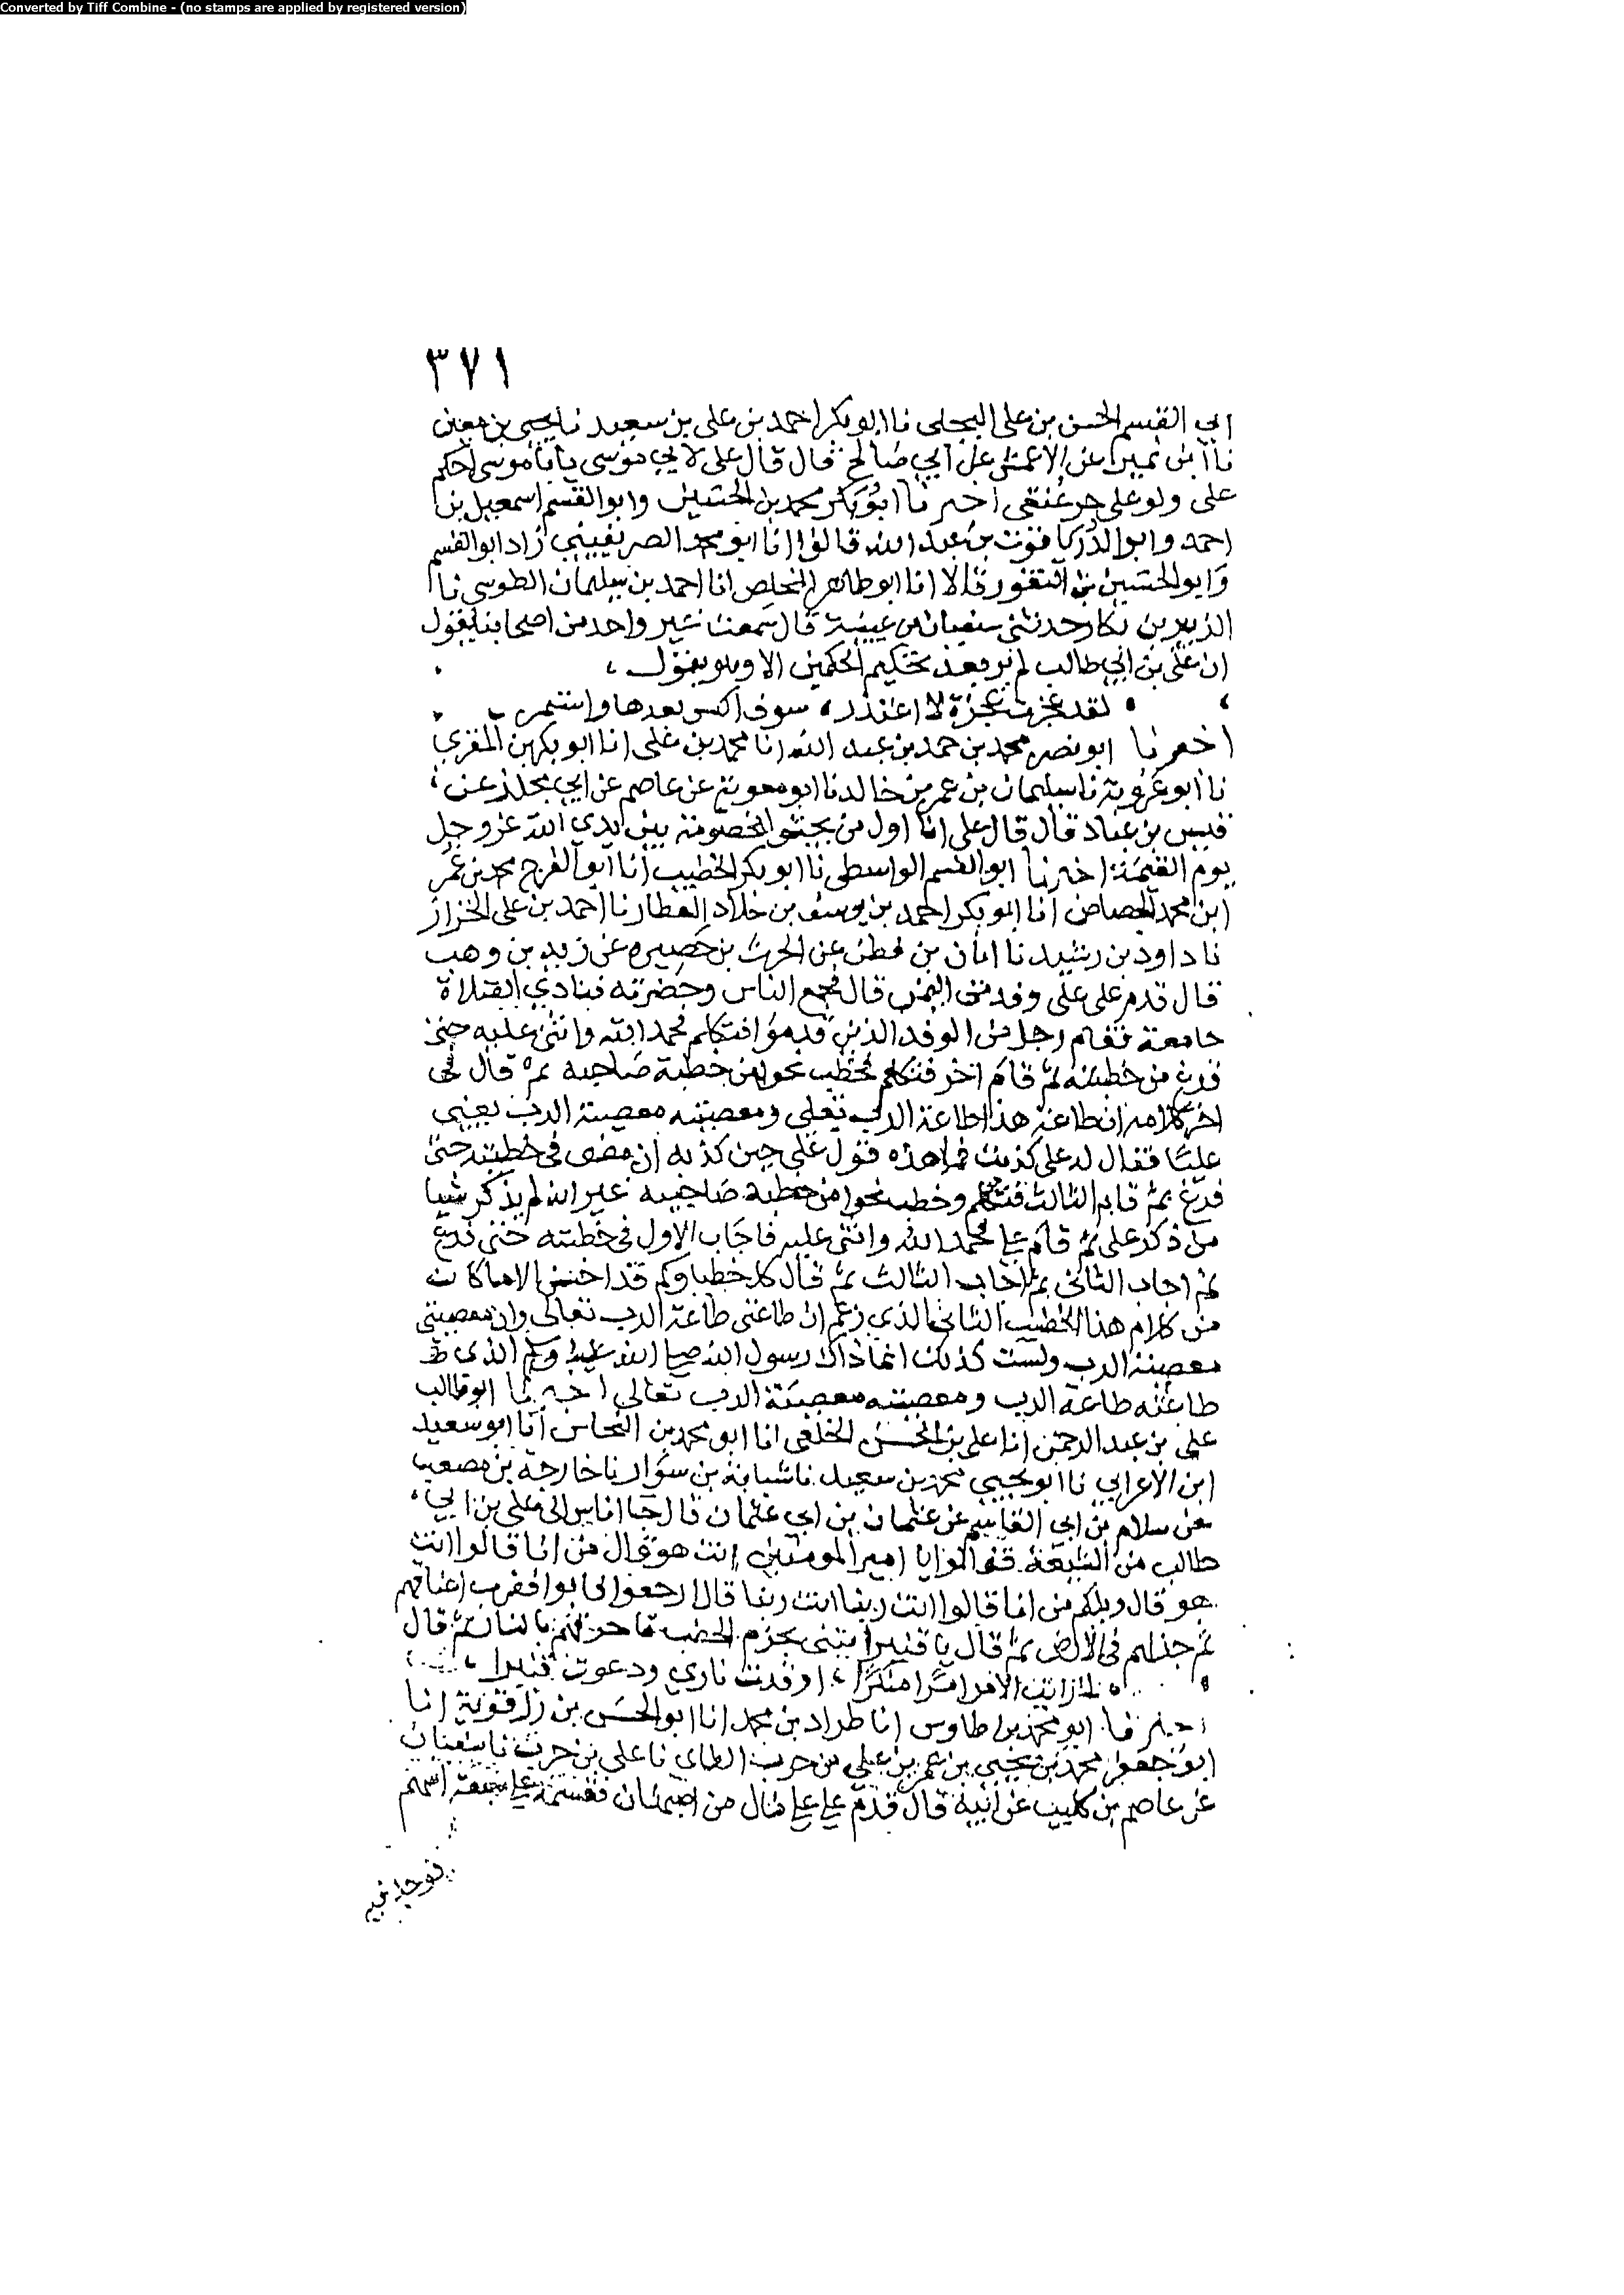 Converted by Tiff Combine - (no stamps are applied by registered version)
٣٧١
ابي القسم الحسن بن على البجلى نا ابو بكر احمد بن على بن سعيد نا يحيى بن معين
نا ابن نمير عن الاعمش عن ابي صالح قال قال على لابي موسى يابا موسى احكم
على ولو على حز عنقى اخبرنا ابو بكر محمد بن الحسين وابو القسم اسمعيل بن
احمد وابو الدر ياقوت بن عبد الله قالوا انا ابو محمد الصريفيني زاد ابو القسم
وابو الحسين بن النقور قالا انا ابو طاهر المخلص انا احمد بن سليمان الطوسي نا
الزبير بن بكار حدثنى سفيان بن عيينة قال سمعت غير واحد من اصحابنا يقول
ان على بن ابي طالب لم ير بعد تحكيم الحكمين الا وهو يقول
لقد عجزت عجزة لا اعتذر سوف اكيس بعدها واستمر
اخبرنا ابو نصر محمد بن حمد بن عبد الله انا محمد بن على انا ابو بكر بن المقرى
نا ابو عروبة نا سليمان بن عمر بن خالد نا ابو معوية عن عاصم عن ابي مجلز عن
قيس بن عباد قال قال على انا اول من يجثوا للخصومة بين يدي الله عز وجل
يوم القيمة اخبرنا ابو القسم الواسطى نا ابو بكر الخطيب انا ابو الفرج محمد بن عمر
ابن محمد الجصاص انا ابو بكر احمد بن يوسف بن خلاد العطار نا احمد بن على الخزاز
نا داود بن رشيد نا ابان بن قطن عن الحرث بن حصيره عن زيد بن وهب
قال قدم على على وفد من اليمن قال فجمع الناس وحضرته فنادي الصلاة
جامعة فقام رجل من الوفد الذين قدموا فتكلم فحمد الله واثنى عليه حتى
فرغ من خطبته ثم قام اخر فتكلم فخطب نحوا من خطبة صاحبه ثم قال في
اخر كلامه ان طاعة هذا طاعة الرب تعلى ومعصيته معصية الرب يعنى
عليا فقال له على كذبت فما هذه قول على حين كذبه ان مضى فى خطبته حتى
فرغ ثم قام الثالث فتكلم وخطب نحوا من خطبة صاحبيه غير انه لم يذكر شيا
من ذكر على ثم قام على فحمد الله واثنى عليه فاجاب الاول فى خطبته حتى فرغ
ثم اجاب الثانى ثم اجاب الثالث ثم قال كل خطباوكم قد احسن الا ما كان
من كلام هذا الخطيب الثانى الذي زعم ان طاعتى طاعة الرب تعالى وان معصيتى
معصية الرب ولست كذلك انما ذاك رسول الله صلى الله عليه وسلم الذى
طاعته طاعة الرب ومعصيته معصية الرب تعالى اخبرنا ابو طالب
على بن عبد الرحمن انا على بن الحسن الخلعى انا ابو محمد بن النحاس انا ابو سعيد
ابن الاعرابي نا ابو يحيى محمد بن سعيد نا شبابة بن سوار نا خارجة بن مصعب
عن سلام بن ابي القاسم عن عثمان بن ابي عثمان قال جا اناس الى على بن ابي
طالب من الشيعة فقالوا يا امير المومنين انت هو قال من انا قالوا انت
هو قال ويلكم من انا قالوا انت ربنا انت ربنا قال ارجعوا فابوا فضرب اعناقهم
ثم خد لهم فى الارض ثم قال يا قنبر ايتنى بحزم الحطب فاحرقهم بالنار ثم قال
لما رايت الامر امرا منكرا اوقدت ناري ودعوت قنبرا
اخبرنا ابو محمد بن طاوس انا طراد بن محمد انا ابو الحسن بن رزقوية انا
ابو جعفر محمد بن يحيى بن عمر بن على بن حرب الطاي نا على بن حرب نا سفيان
عن عاصم بن كليب عن ابيه قال قدم على على مال من اصبهان فقسمه على سبعة اسهم
فوجد فيه